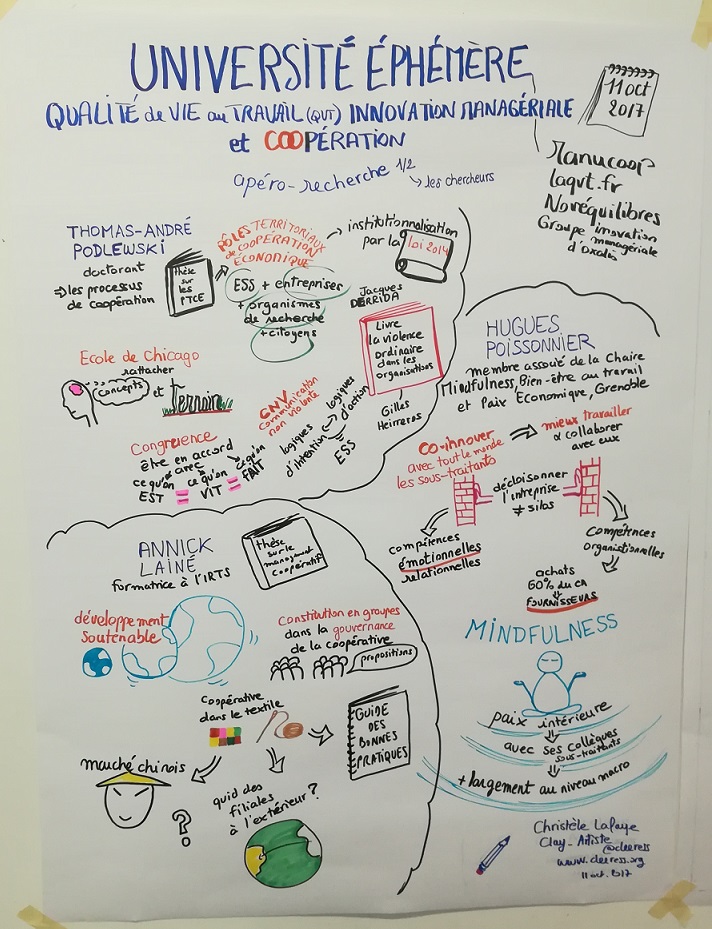 UNIVERSITÉ ÉPHÉMÈRE
QUALITÉ de VIE au TRAVAIL (QVT) INNOVATION MANAGÉRIALE
et COOPÉRATION
11 oct
2017
apéro-recherche 1/2
les chercheurs
Manucoop
laqvt.fr
Novéquilibres
Groupe inovation
managériale
d'Oxalis
THOMAS-ANDRÉ
PODLEWSKI
doctorant
=> les processus
de coopération
thèse
sur
les
PTCE
PÔLES TERRITORIAUX
de COOPÉRATION
ÉCONOMIQUE
institutionnalisation
par la
loi 2014
ESS + entreprises
+ organismes
de recherche
+ citoyens
Jacques
DERRIDA
Livre
la violence
ordinaire
dans les
organisations
Gilles
Herreros
Ecole de Chicago
rattacher
concepts
et
terrain
CNV
communication
non violente
logiques
d'intention
logiques
d'action
ESS
Congruence
être en accord
avec
ce qu'on
EST
=
ce qu'on
VIT
=
ce qu'on
FAIT
HUGUES
POISSONNIER
membre associé de la Chaire
Mindfulness, Bien-être au travail
et Paix Economique, Grenoble
co-innover
avec tout le monde
les sous-traitants
mieux travailler
& collaborer
avec eux
décloisonner
l'intreprise
≠ silos
compétences
émotionnelles
relationnelles
compétences
organisationnelles
achats
60% du CA
FOURNISSEURS
MINDFULNESS
paix intérieure
avec ses collègues
sous-traitants
+ largement au niveau macro
ANNICK
LAINÉ
formatrice à l'IRTS
thèse
sur le
management
coopératif
développement
soutenable
Constitution en groupes
dans la gouvernance
de la coopérative
propositions
coopérative
dans le textile
GUIDE
DES
BONNES
PRATIQUES
marché chinois
?
quid des
filiales
à l'extérieur ?
Christèle Lafaye
Clay-Artiste
@cleeress
www.cleeress.org
11 oct. 2017